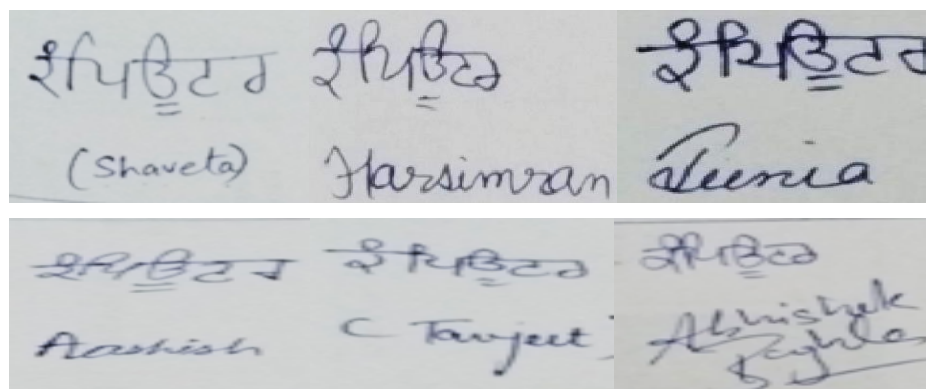 ਕੰਪਿਊਟਰ ਕੰਪਿਊਟਰ ਕੰਪਿਊਟਰ
(Shaveta) Harsimran
ਕੰਪਿਊਟਰ ਕੰਪਿਊਟਰ ਕੰਪਿਊਟਰ
Aashish Abhishek